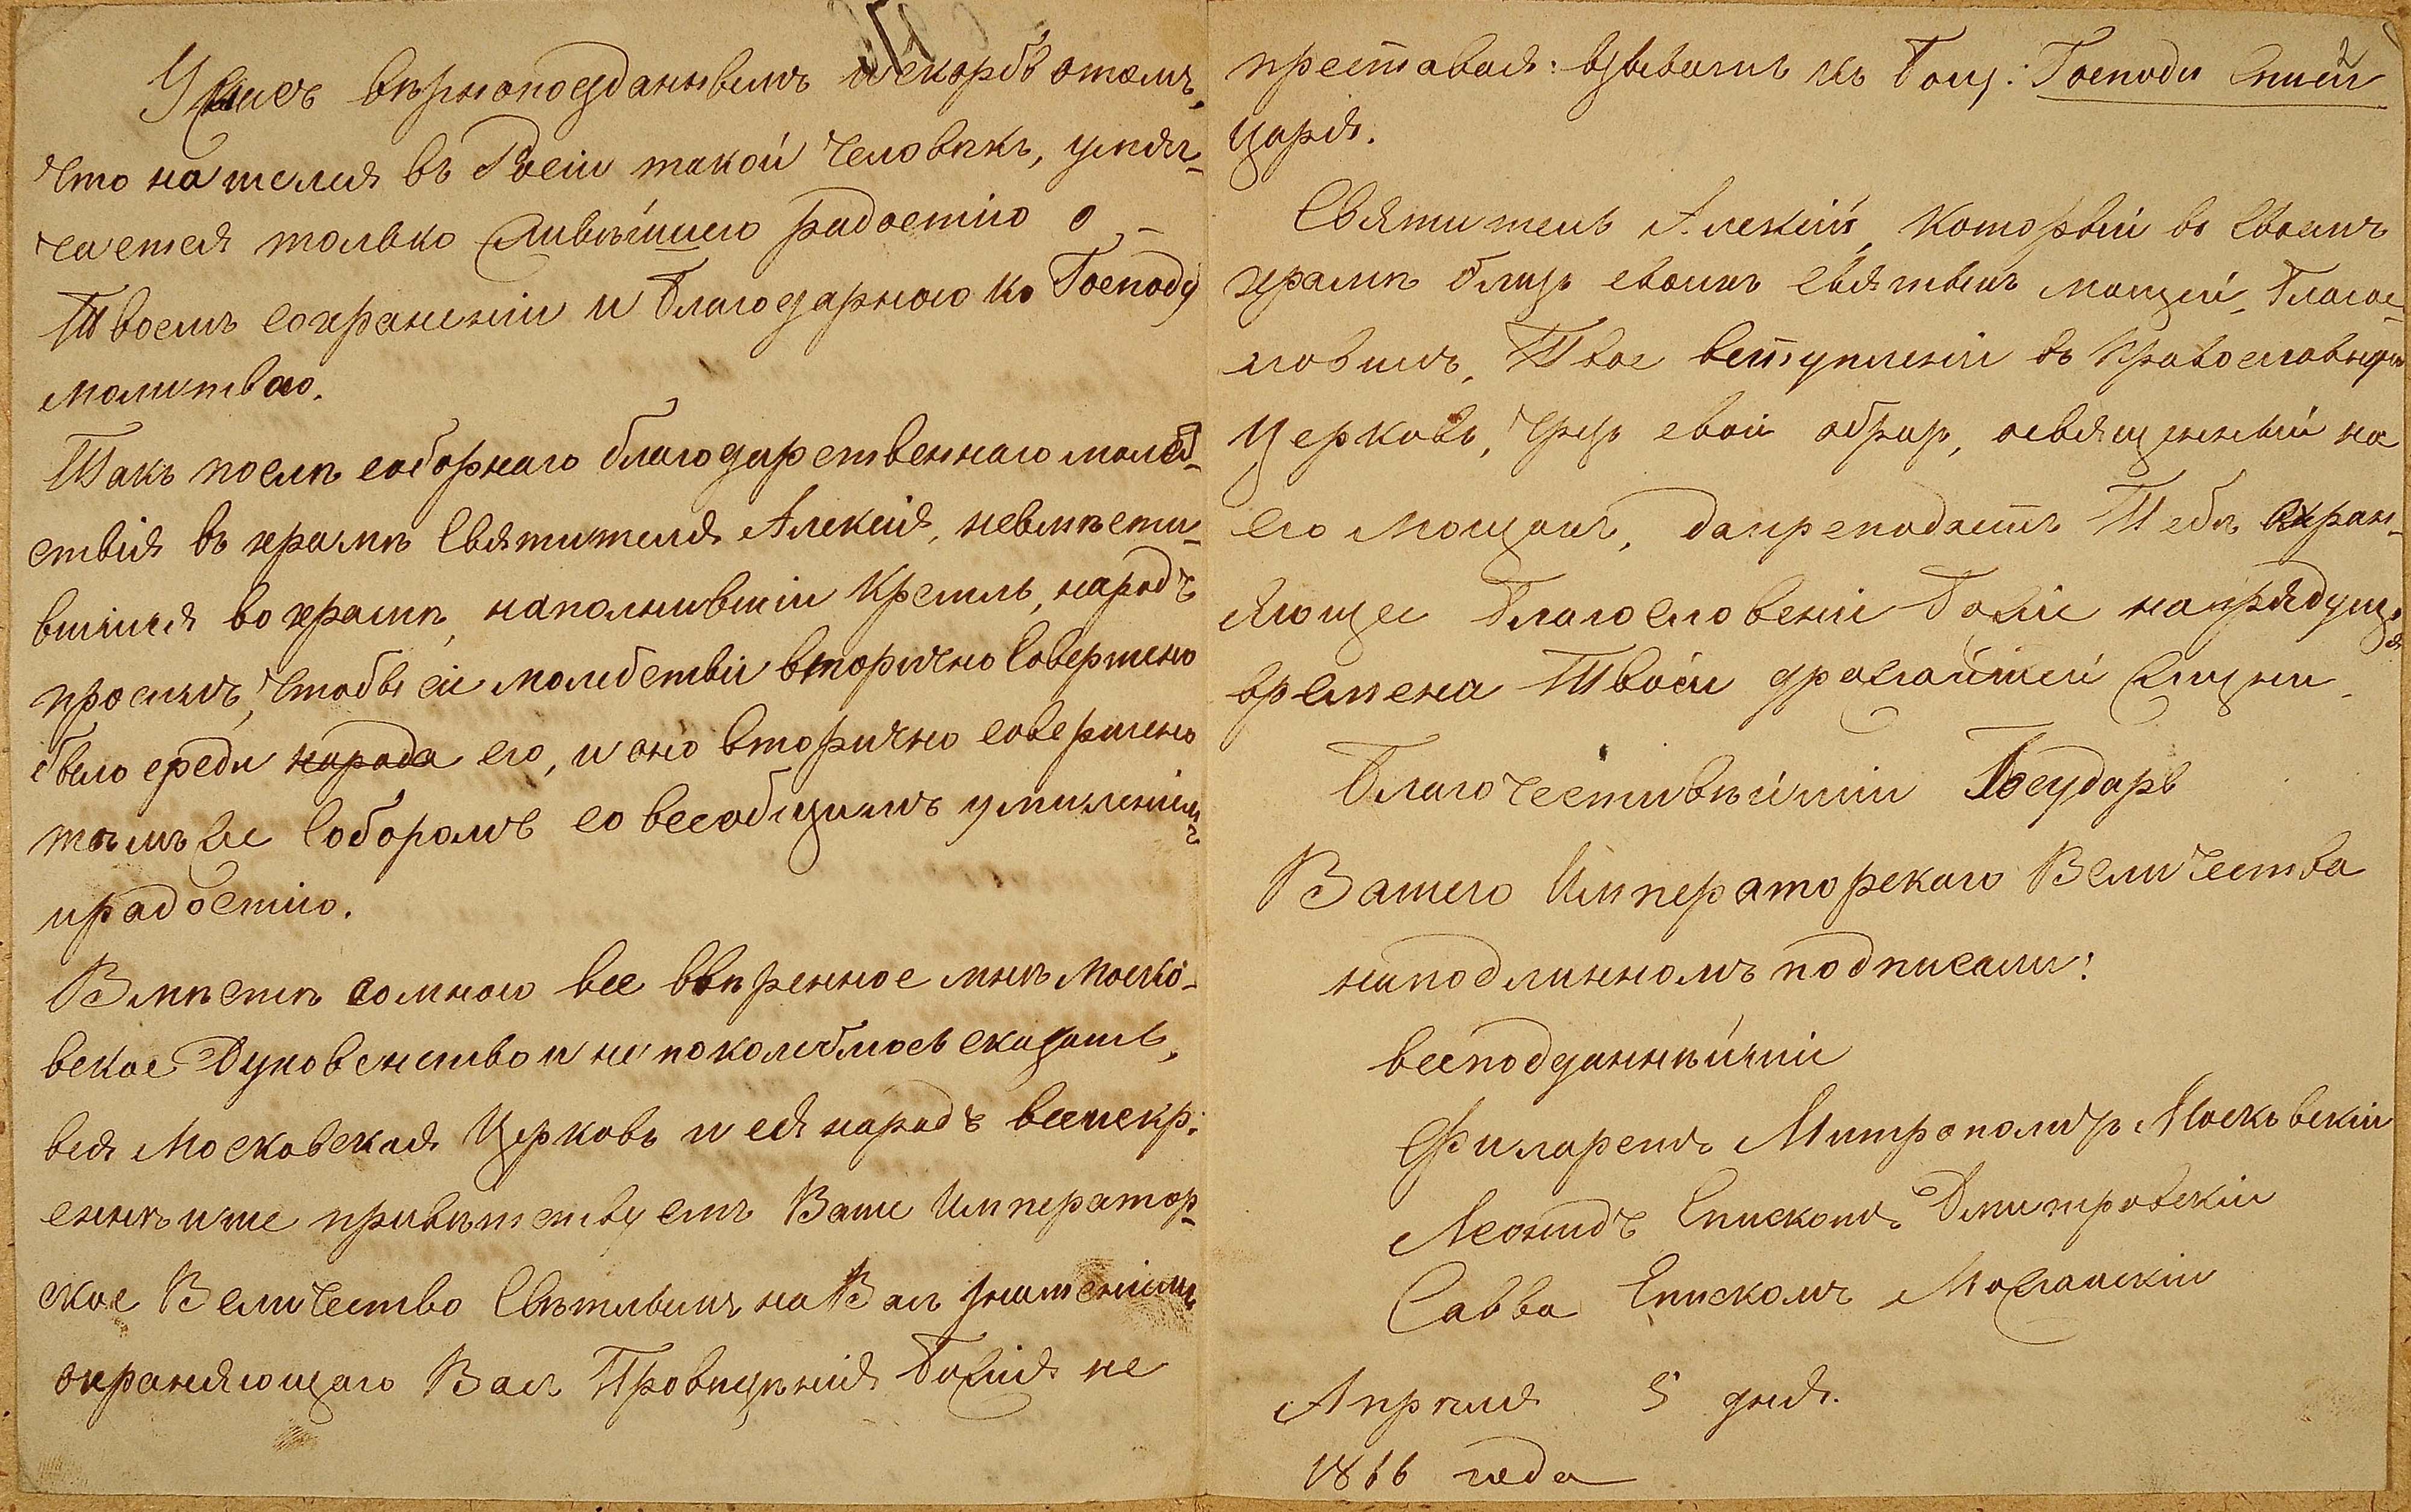 Ужасъ вѣрноподданныхъ и скорбь отомъ,
что нашелся въ Росіи такой человѣкъ, умяг-
чается только живѣйшею радостію о
Твоемъ сохраненіи и благодарною ко Господу
молитвою.
Такъ послѣ соборнаго благодарственнаго молеб-
ствія въ храмѣ Святителя Алексія, невмѣсти-
вшійся во храмѣ, наполнившій Кремль, народъ
просилъ, чтобы сіе молебствіе вторично совершено
было среди народа его, и оно вторично совершено
тѣмъ же соборомъ со всеобщимъ умиленіемъ
ирадостію.
Вмѣстѣ сомною все ввѣренное мнѣ Моско-
вское Духовенство и не поколеблюсь сказать,
вся Московская Церковь и ея народъ всеискр-
еннѣише привѣтствуетъ Ваше Император-
ское Величество Свѣтлымъ на Вас знаменіемъ
охраняющаго Вас Провидѣнія Божія не
преставая: взывать къ Богу: Господи Спаси
Царя.
Святитель Алексій, который во своемъ
храмѣ близь своихъ святыхъ мощей, благос-
ловилъ, Твое вступленіи въ Православную
Церковь, чрезъ свой образ, освященный на
его мощахъ, дапреподастъ Тебѣ охран-
яющее благословеніе Божіе на грядущія
времена Твоей дрожайшей жизни.
Благочестивѣйшій Государь
Вашего Императорскаго Величества
наподлинномъ подписали:
всеподданнѣйшій
Филаретъ Митрополитъ Московскій
Леонидъ Епископъ Дмитровскій
Савва Епископъ Можайскій
Апрѣля 5 дня.
1866 года